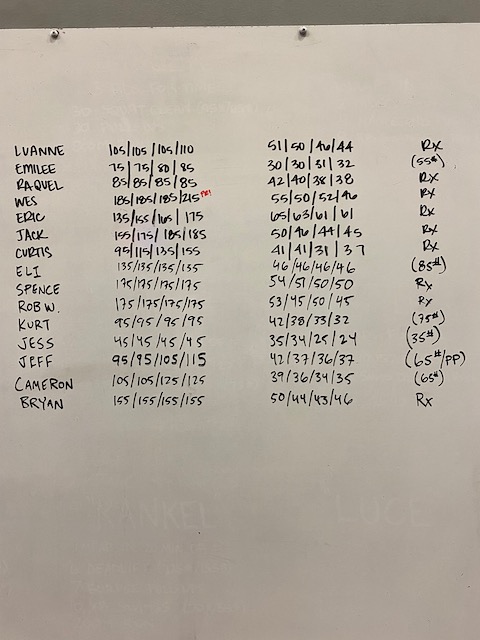 LUANNE 105/105/105/110 51/50/46/44 Rx
EMILEE 75/75/80/85 30/30/31/32 (55#)
RAQUEL 85/85/85/85 42/40/38/38 Rx
WES 185/185/185/215 PR! 55/50/52/46 Rx
ERIC 135/155/165/175 65/63/61/61 Rx
JACK 155/175/185/185 50/46/44/45 Rx
CURTIS 95/115/135/155 41/41/31/37 Rx
ELI 135/135/135/135 46/46/46/46 (85#)
SPENCE 175/175/175/175 54/51/50/50 Rx
ROB W. 175/175/175/175 53/45/50/45 Rx
KURT 95/95/95/95 42/38/33/32 (75#)
JESS 45/45/45/45 35/34/25/24 (35#)
JEFF 95/95/105/115 42/37/36/37 (65#/PP)
CAMERON 105/105/125/125 39/36/34/35 (65#)
BRYAN 155/155/155/155 50/44/43/46 Rx
RANKEL LUCE